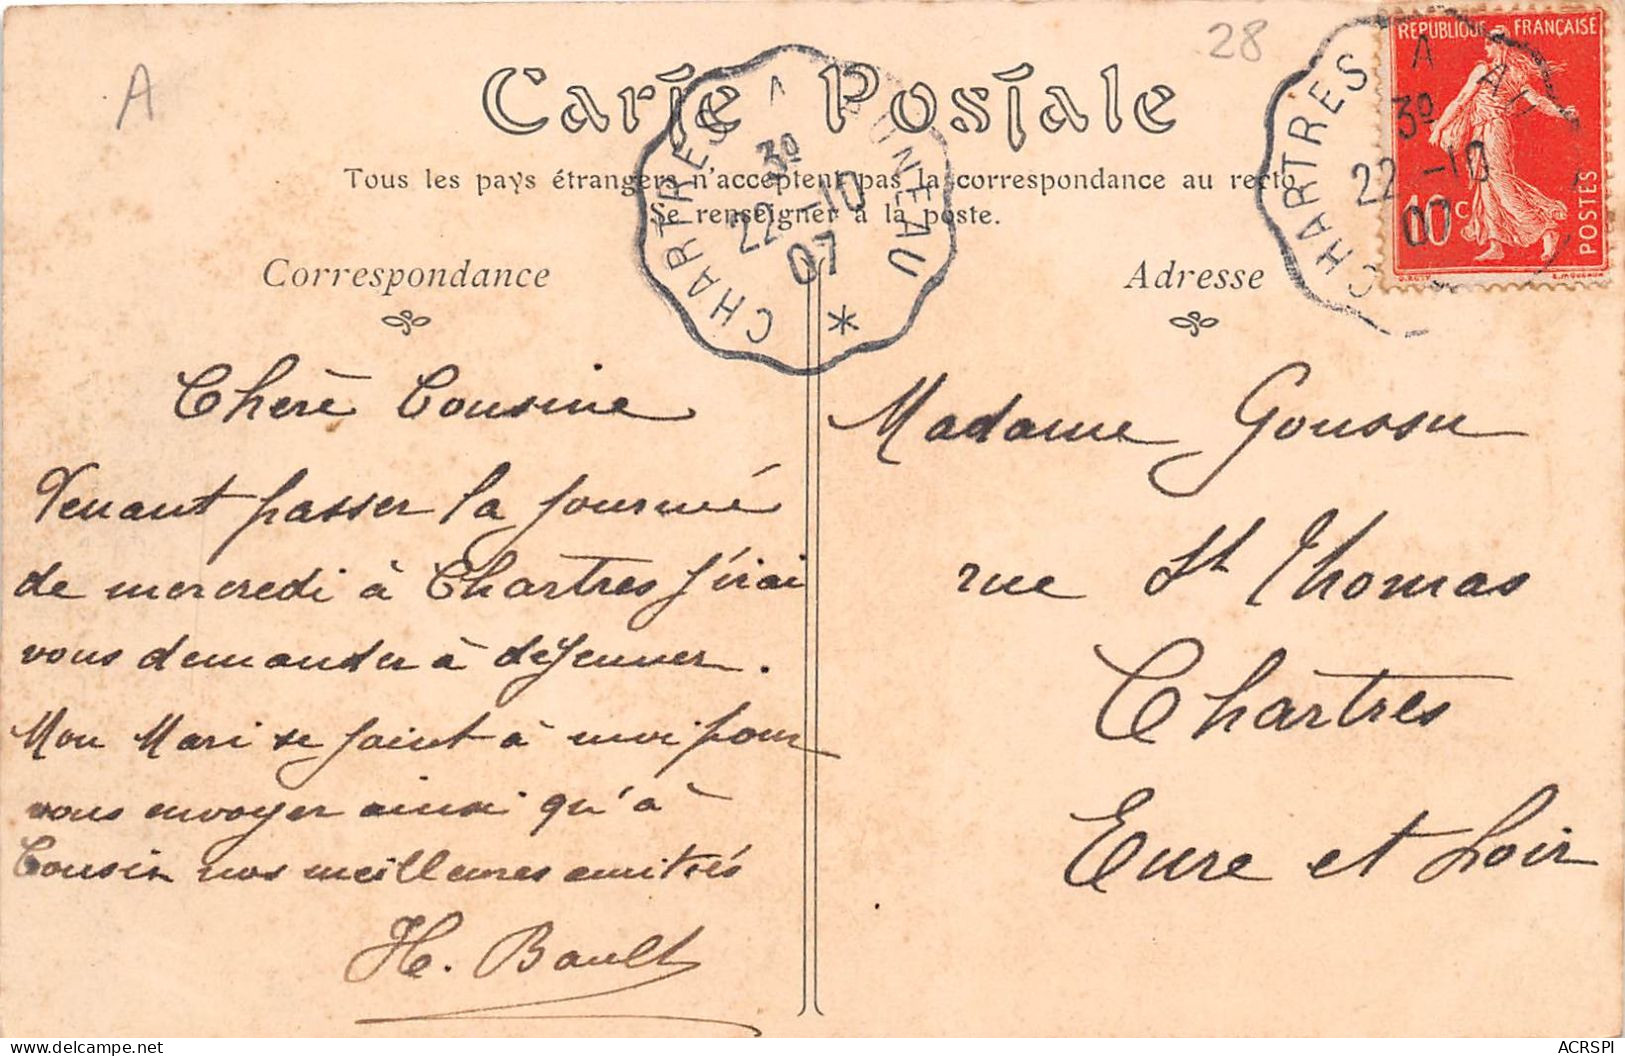 A
28
Carte Postale
Tous les pays étrangers n'acceptent pas la correspondance au recto
Se renseigner à la poste.
Correspondance
Adresse
CHARTRES A AUNEAU
3º
22 -10
07
*
CHARTRES A AU
3º
22 -10
07
REPUBLIQUE FRANÇAISE
10 c
POSTES
Chère Cousine
Venant passer la journé
de mercredi à Chartres j'irai
vous demander à dejeuner.
Mon Mari se joint à moi pour
vous envoyer ainsi qu'à
Cousin nos meilleures amitiés
H. Bault
Madame Goussu
rue St Thomas
Chartres
Eure et Loir
ACRSPI